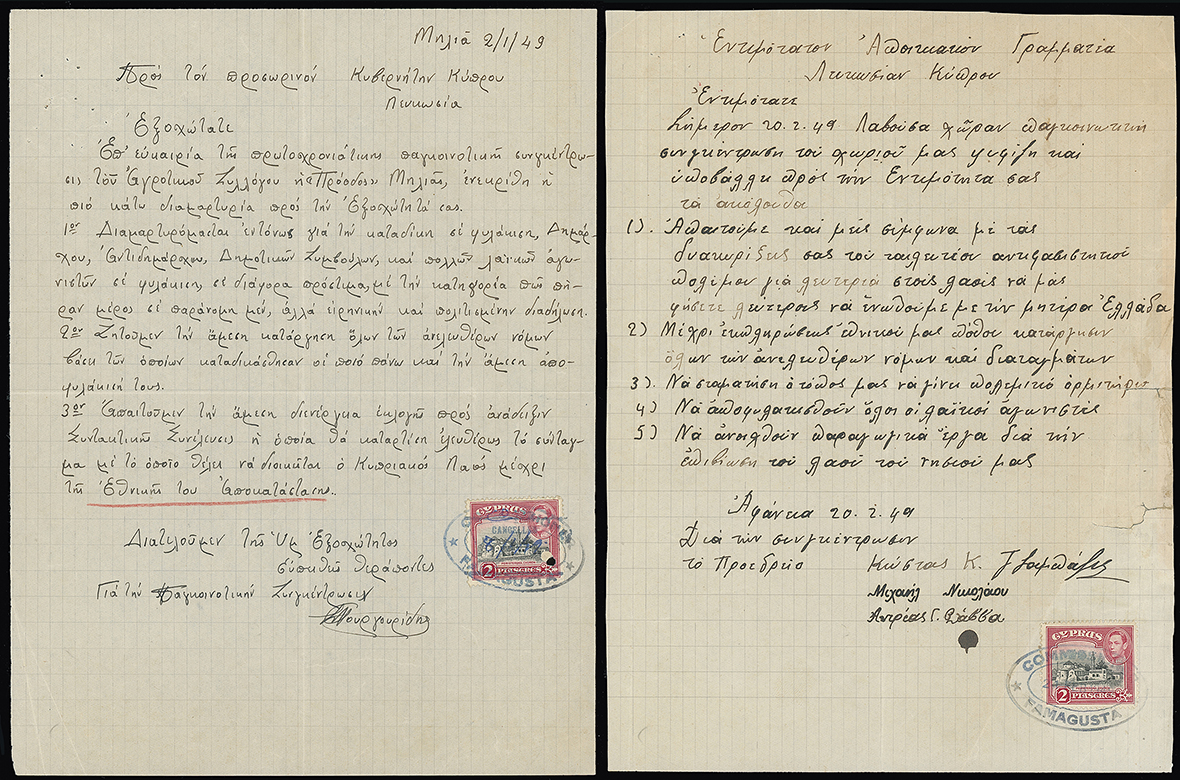 Μηλιά 2/1/49
Πρός τόν προσωρινόν Κυβερνήτην Κύπρου
Λευκωσία
Ἐξοχώτατε
Ἐπ' εὐκαιρία τῆς πρωτοχρονιάτικης παγκοινοτικῆς συνγκέντρω-
σις τοῦ Ἀγροτικοῦ Συλλόγου ἡ «Πρόοδος» Μηλιᾶς, ἐνεκρίθη ἡ
πιό κάτω διαμαρτυρία πρός τήν Ἐξοχώτητά σας.
1ον Διαμαρτυρόμαστε ἐντόνως γιά τήν καταδίκη σέ φυλάκιση, Δημάρ-
χου, Ἀντιδημάρχου, Δημοτικῶν Συμβούλων, καί πολλῶν λαϊκῶν ἀγω-
νιστῶν σέ φυλάκιση, σέ διάφορα πρόστιμα, μέ τήν κατηγορία πώς πῆ-
ραν μέρος σέ παράνομη μέν, ἀλλά εἰρηνική καί πολιτισμένην διαδήλωση.
2ον Ζητοῦμεν τήν ἄμεση κατάργηση ὅλων τῶν ἀνελευθέρων νόμων
βάσει τῶν ὁποίων καταδικάσθηκαν οἱ ποιό πάνω καί τήν ἄμεση ἀπο-
φυλάκισή τους.
3ον Ἀπαιτοῦμεν τήν ἄμεση διενέργεια ἐκλογῶν πρός ἀνάδειξιν
Συντακτικῆς Συνέλευσις ἡ ὁποία θά καταρτίσει ἐλευθέρως τό σύνταγ-
μα μέ τό ὁποῖο θέλει νά διοικεῖται ὁ Κυπριακός Λαός μέχρι
τῆς Ἐθνικῆς του Ἀποκατάστασης.
Διατελοῦμεν τῆς Ὑμ. Ἐξοχώτητος
εὐπειθεῖς θεράποντες
Γιά τήν Παγκοινοτικήν Συγκέντρωσιν
Πουργουρίδης
CYPRUS
CANCELLED
2 PIASTRES 2
FAMAGUSTA
Ἐντιμότατον Ἀποικιακόν Γραμματέα
Λευκωσίαν Κύπρου
Ἐντιμότατε
Σήμερον 20.2.49 Λαβοῦσα χῶραν παγκοινωτική
συνγκέντρωση τοῦ χωριοῦ μας ψηφίζη καί
ὑποβάλλει πρός τήν Ἐντιμότητα σας
τά ἀκόλουθα
1). Ἀπαιτοῦμε καί μείς σύμφωνα μέ τάς
διακηρίξεις σας τοῦ τελευτέου ἀντιφασιστηκοῦ
πολέμου γιά λευτεριά στούς λαούς νά μᾶς
φήσετε λεύτερους νά ἑνωθοῦμε μέ τήν μητέρα Ἑλλάδα
2) Μέχρι ἐκπληρώσεως ἐθνικοῦ μας πόθου κατάργησιν
ὅλων τῶν ἀνελευθέρων νόμων καί διαταγμάτων
3). Νά σταματήση ὁ τόπος μας νά γίνει πολεμικό ὁρμητήριο
4) Νά ἀποφυλακισθοῦν ὅλοι οἱ λαϊκοί ἀγωνιστές
5) Νά ἀνοιχθοῦν παραγωγικά ἔργα διά τήν
ἐπιβίωση τοῦ λαοῦ τοῦ νησιοῦ μας
Ἀφάνεια 20.2.49
Διά τήν συνγκέντρωσιν
τό Προεδρεῖο Κώστας Κ.
Μιχαήλ Νικολάου
Αντρέας Γ. Σάββα
CYPRUS
2 PIASTRES
FAMAGUSTA